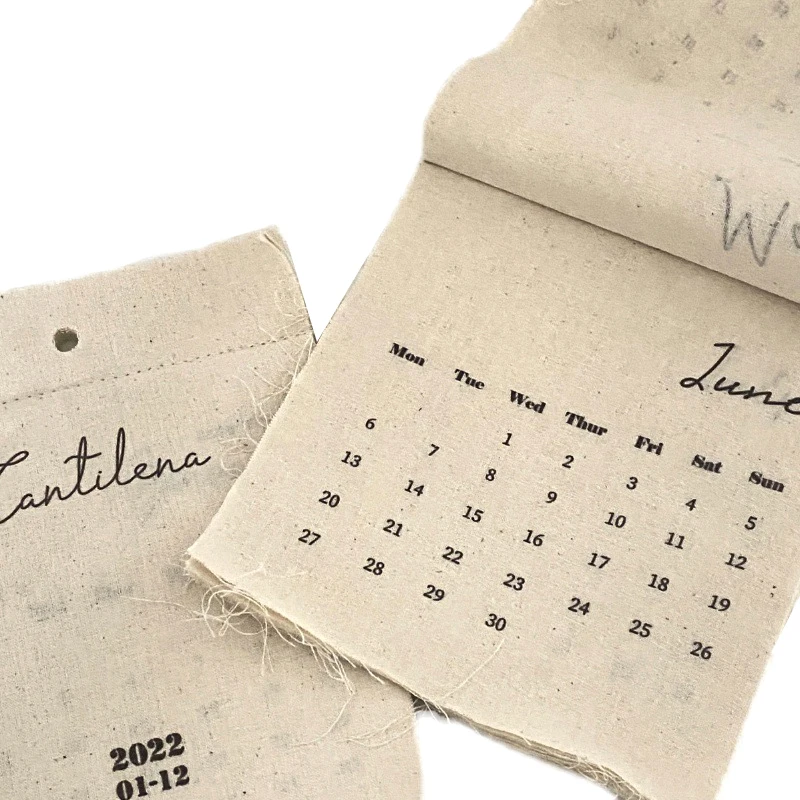 Cantilena
2022
01-12
June
Mon Tue Wed Thur Fri Sat Sun
1 2 3 4 5
6 7 8 9 10 11 12
13 14 15 16 17 18 19
20 21 22 23 24 25 26
27 28 29 30